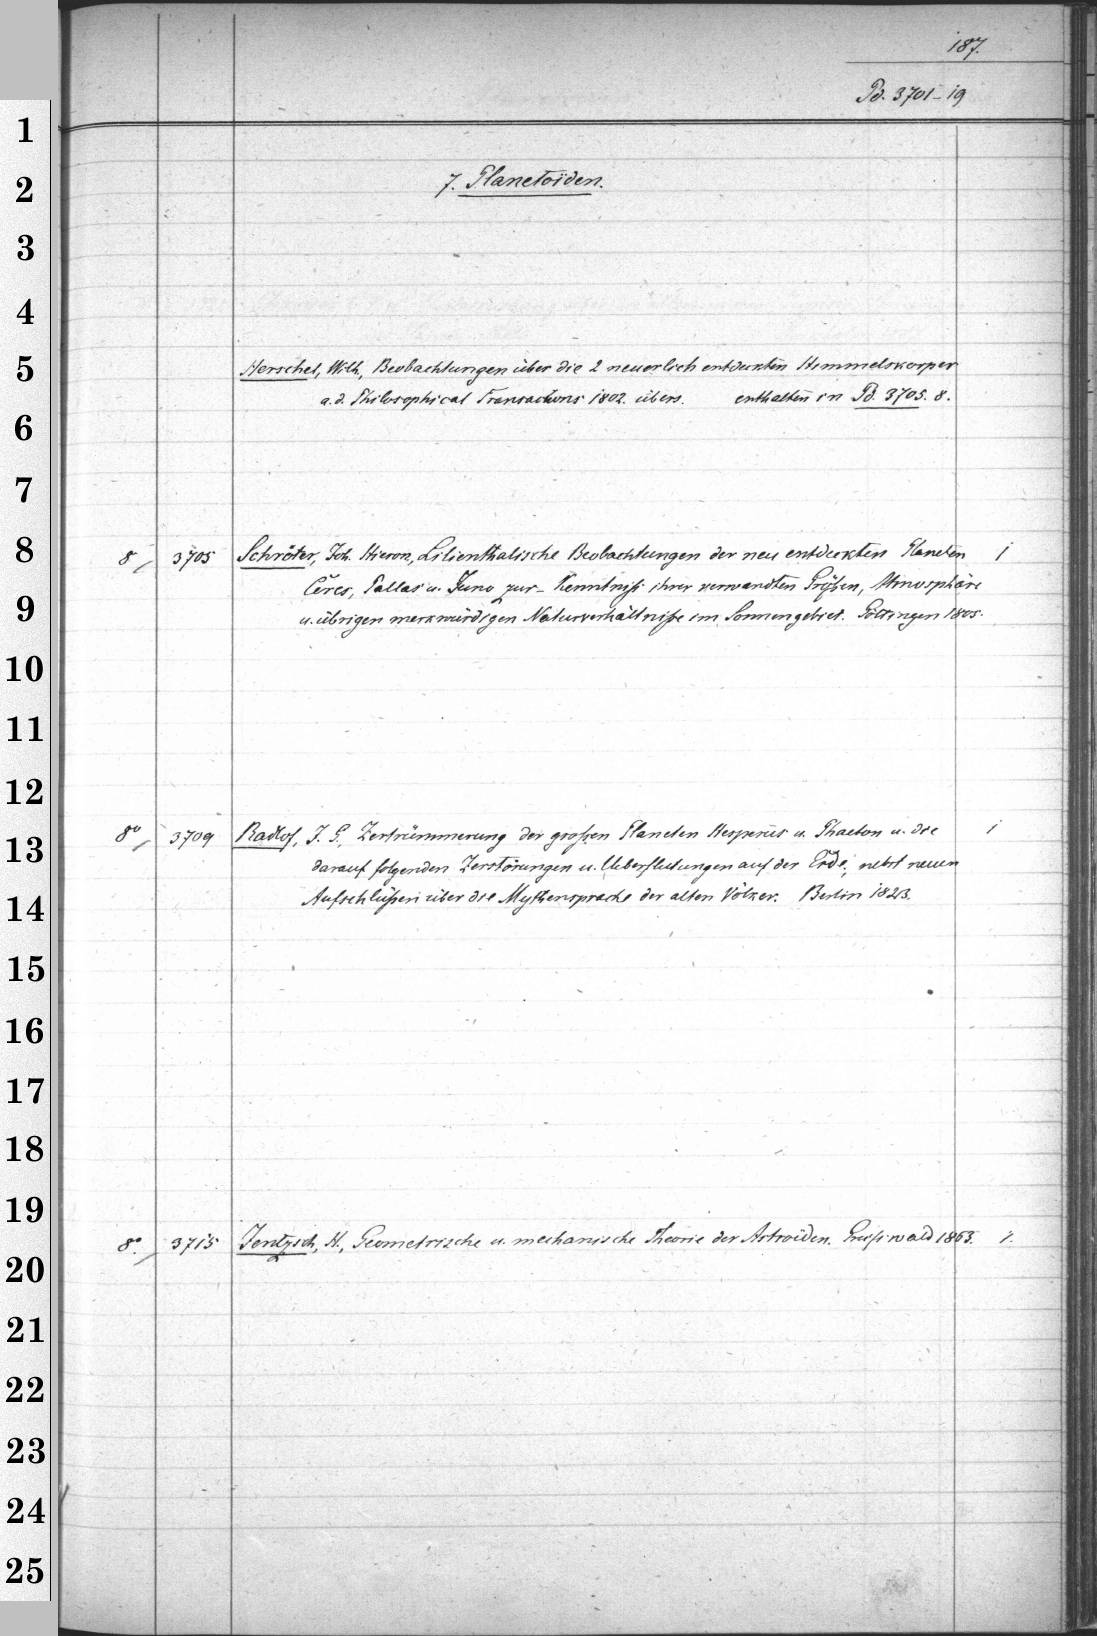 187.
Pd. 3701-19
7. Planetoïden.
Herschel, Wilh., Beobachtungen über die 2 neuerlich entdeckten Himmelskörper
a. d. Philosophical Transactions 1802. übers. enthalten in Pd. 3705. 8.
8 3705 Schröter, Joh. Hieron., Lilienthalische Beobachtungen der neu entdeckten Planeten 1
Ceres, Pallas u. Juno zur Kenntniß ihrer verwandten Größen, Atmosphäre
u. übrigen merkwürdigen Naturverhältniße im Sonnengebiet. Göttingen 1805.
8º 3709 Radlof, J. G., Zertrümmerung der großen Planeten Hesperus u. Phaeton u. die 1
darauf folgenden Zerstörungen u. Ueberflutungen auf der Erde; nebst neuen
Aufschlüßen über die Mythensprache der alten Völker. Berlin 1823.
8º. 3715 Jentzsch, H., Geometrische u. mechanische Theorie der Astroïden. Greifswald 1863. 1.
1
2
3
4
5
6
7
8
9
10
11
12
13
14
15
16
17
18
19
20
21
22
23
24
25